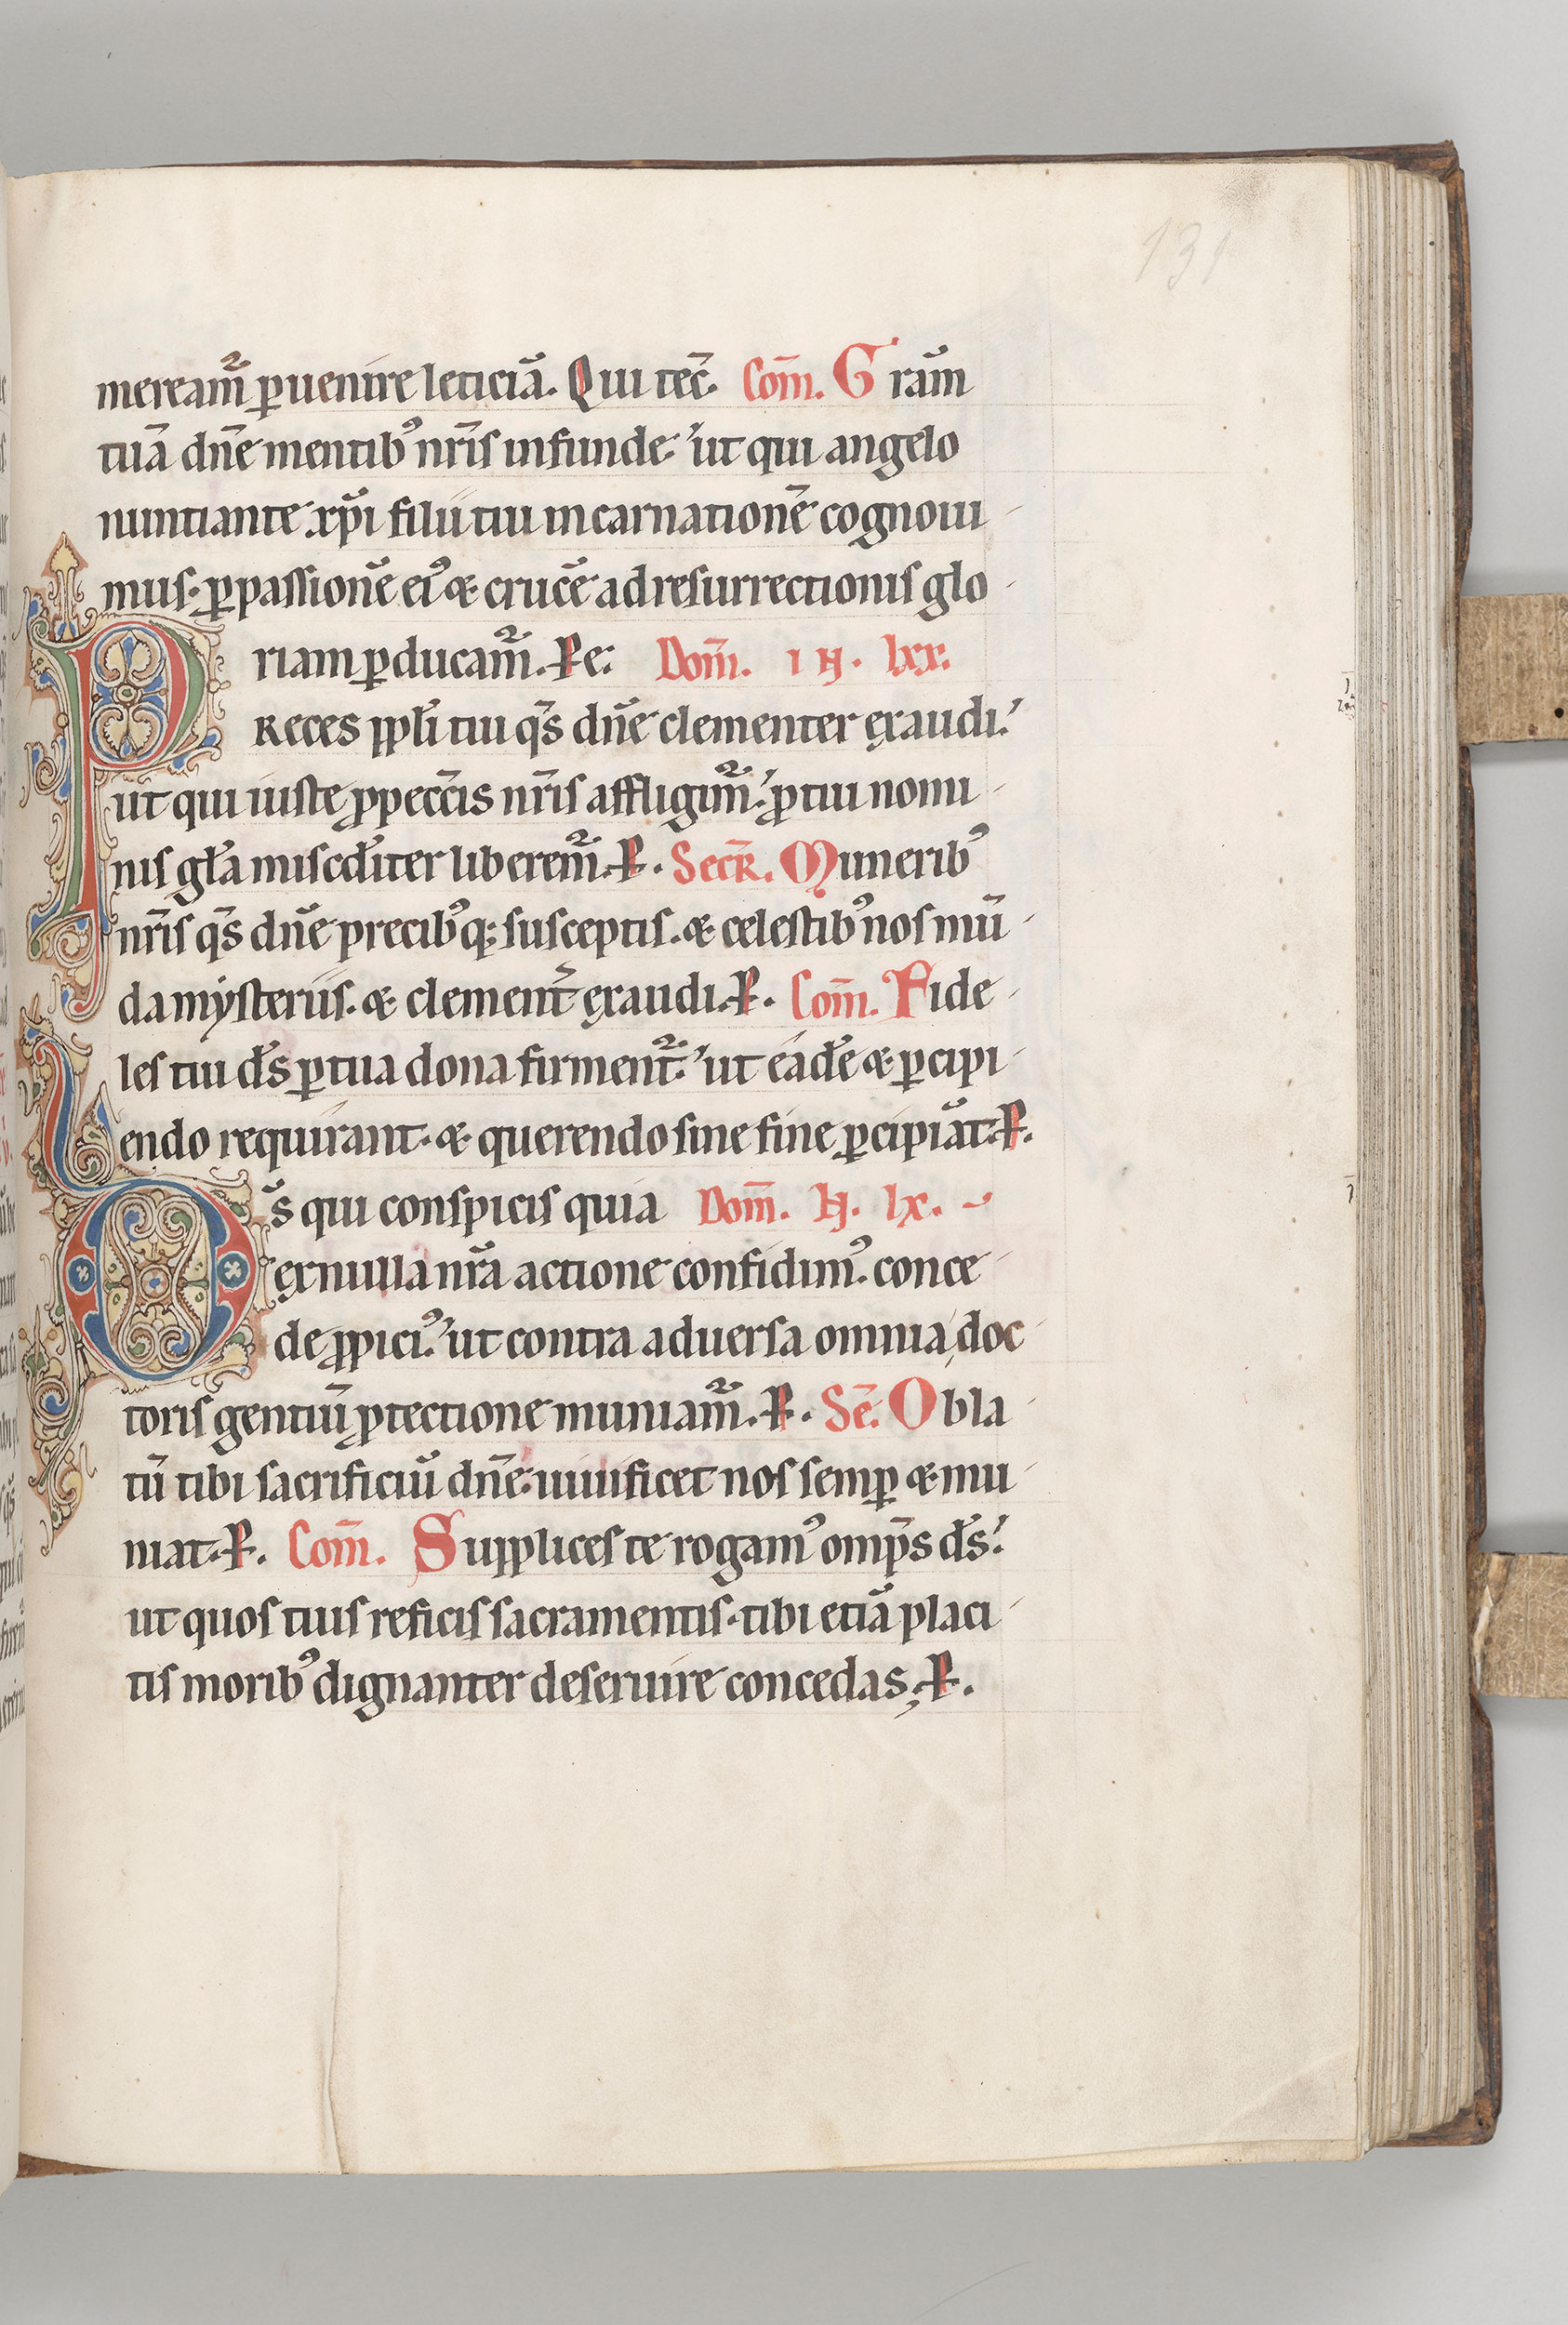 131
meream̃ ꝑuenire leticiā. Qui tec̄. Com̄. Grām
tuā dn̄e mentibꝰ nr̄is infunde: ut qui angelo
nuntiante xp̄i filii tui incarnationē cognoui
mus. ꝑ passionē eiꝰ & crucē ad resurrectionis glo
riam ꝑducam̃. Pe: Dom̄. IN. lxx.
Preces ppl̄i tui qs̄ dn̄e clementer exaudi:
ut qui iuste ꝓ pecc̄is nr̄is affligim̃: ꝓ tui nomi
nis gl̄a misc̄diter liberem̃. P. Secr̄. Muneribꝰ
nr̄is qs̄ dn̄e precibꝰq; susceptis. & celestibꝰ nos mū
da mysteriis. & clement̄ exaudi. P. Com̄. Fide
les tui ds̄ ꝑ tua dona firment̃: ut eadē & ꝑcipi
endo requirant. & querendo sine fine ꝑcipiāt. P.
Ds̄ qui conspicis quia Dom̄. IN. lx.
ex nulla nr̄a actione confidimꝰ. conce
de ꝓpiciꝰ: ut contra aduersa omnia doc
toris gentiū ꝓtectione muniam̃. P. Sec̄. Obla
tū tibi sacrificiū dn̄e uiuificet nos semꝑ & mu
niat. P. Com̄. Supplices te rogamꝰ omps̄ ds̄:
ut quos tuis reficis sacramentis. tibi etiā placi
tis moribꝰ dignanter deseruire concedas. P.